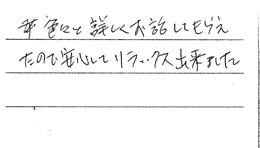 色々と詳しくお話してもらえ
たので安心してリラックス出来ました